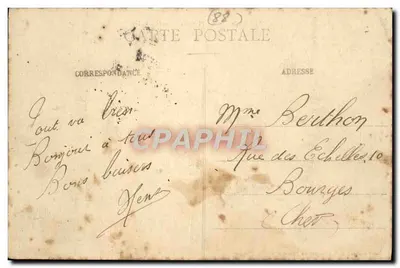 (88)
CARTE POSTALE
CORRESPONDANCE
ADRESSE
Tout va bien
Bonjour à tous
Bons baisers
Mme Berthon
Rue des Echelles, 10
Bourges
Cher
CPAPHIL